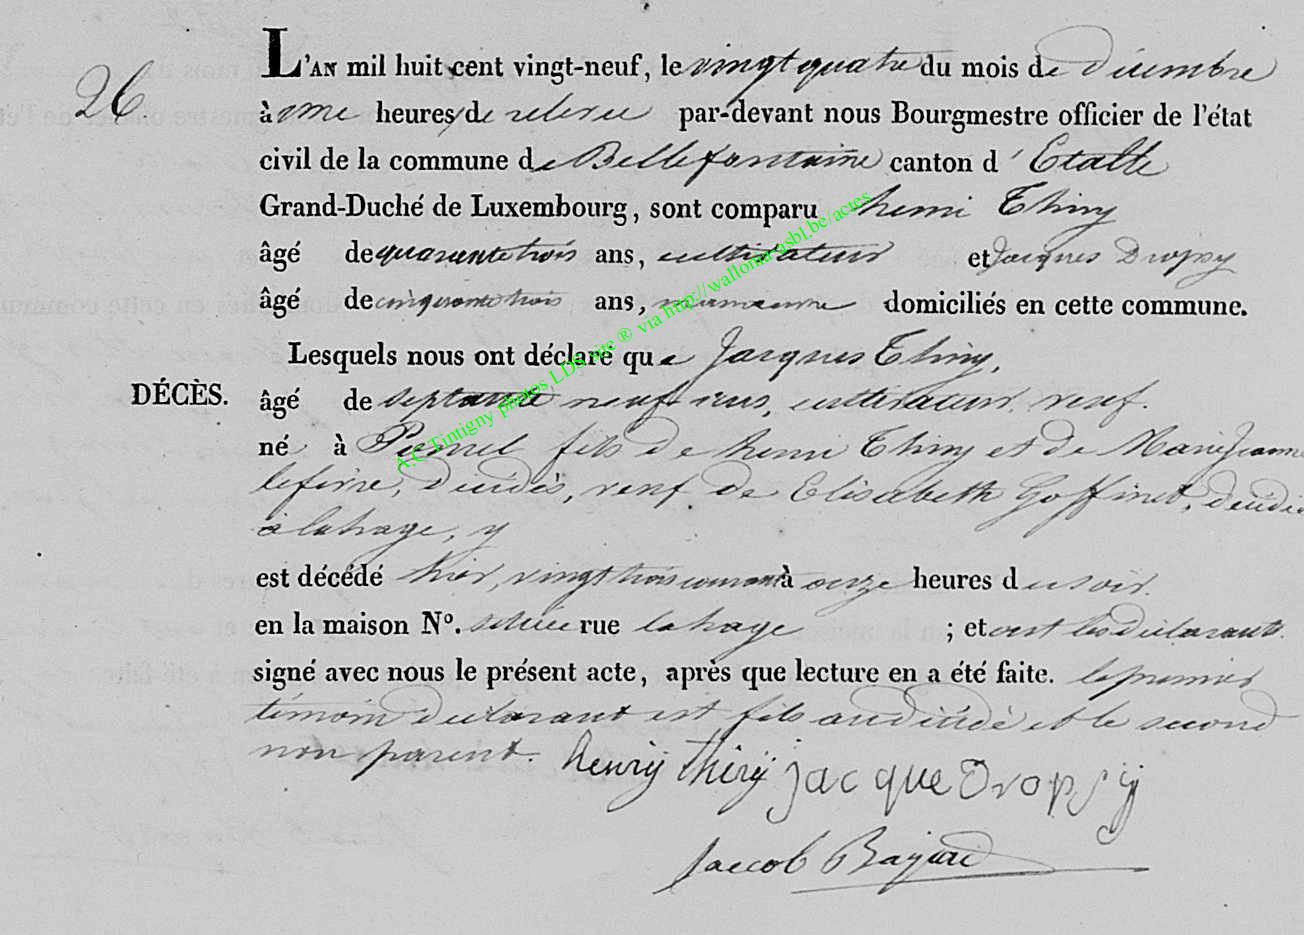 26
L'AN mil huit cent vingt-neuf, le vingt quatre du mois de décembre
à onze heures de relevee par-devant nous Bourgmestre officier de l'état
civil de la commune de Bellefontaine canton d'Etalle
Grand-Duché de Luxembourg, sont comparu henri Thiry
âgé de quarante trois ans, cultivateur et Jacques Dropsy
âgé de cinquante trois ans, domiciliés en cette commune.
Lesquels nous ont déclaré que Jacques Thiry,
DÉCÈS.
âgé de septante neuf ans, cultivateur, veuf.
né à fils de henri Thiry et de Marie Jeanne
décédés, veuf de Elisabeth Goffinet, décédée
à lahage, y
est décédé hier, vingt trois courant à onze heures du soir.
en la maison Nº. située rue lahage ; et ont les déclarants
signé avec nous le présent acte, après que lecture en a été faite. le premier
témoin déclarant est fils au décédé et le second
non parent. henry thiry jacque Dropsy
Jacob Bajard
A.C.Tintigny photos LDS site ® via http://wallonia-asbl.be/actes